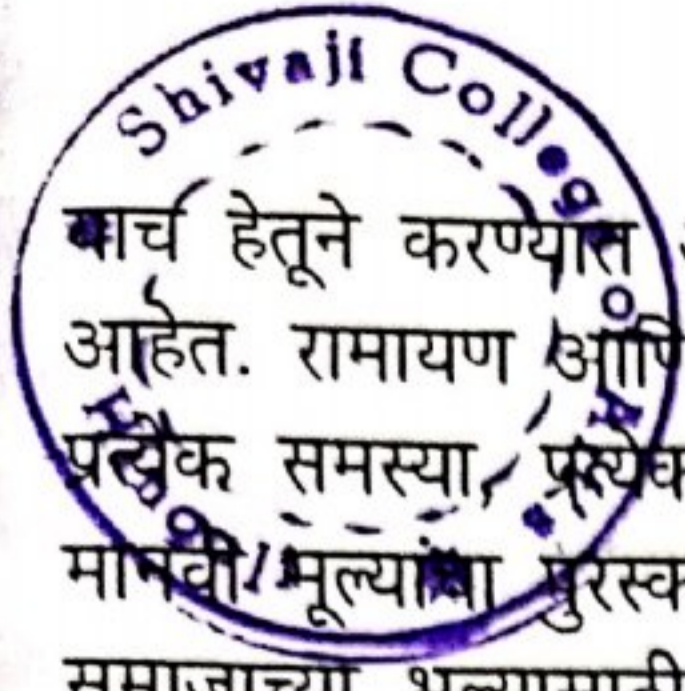 Shivaji College o
याच हेतूने करण्यात
आहेत. रामायण आणि
प्रत्येक समस्या, प्रत्येक
मानवी मूल्यांचा पुरस्क
समाजाच्या भल्यासाठी